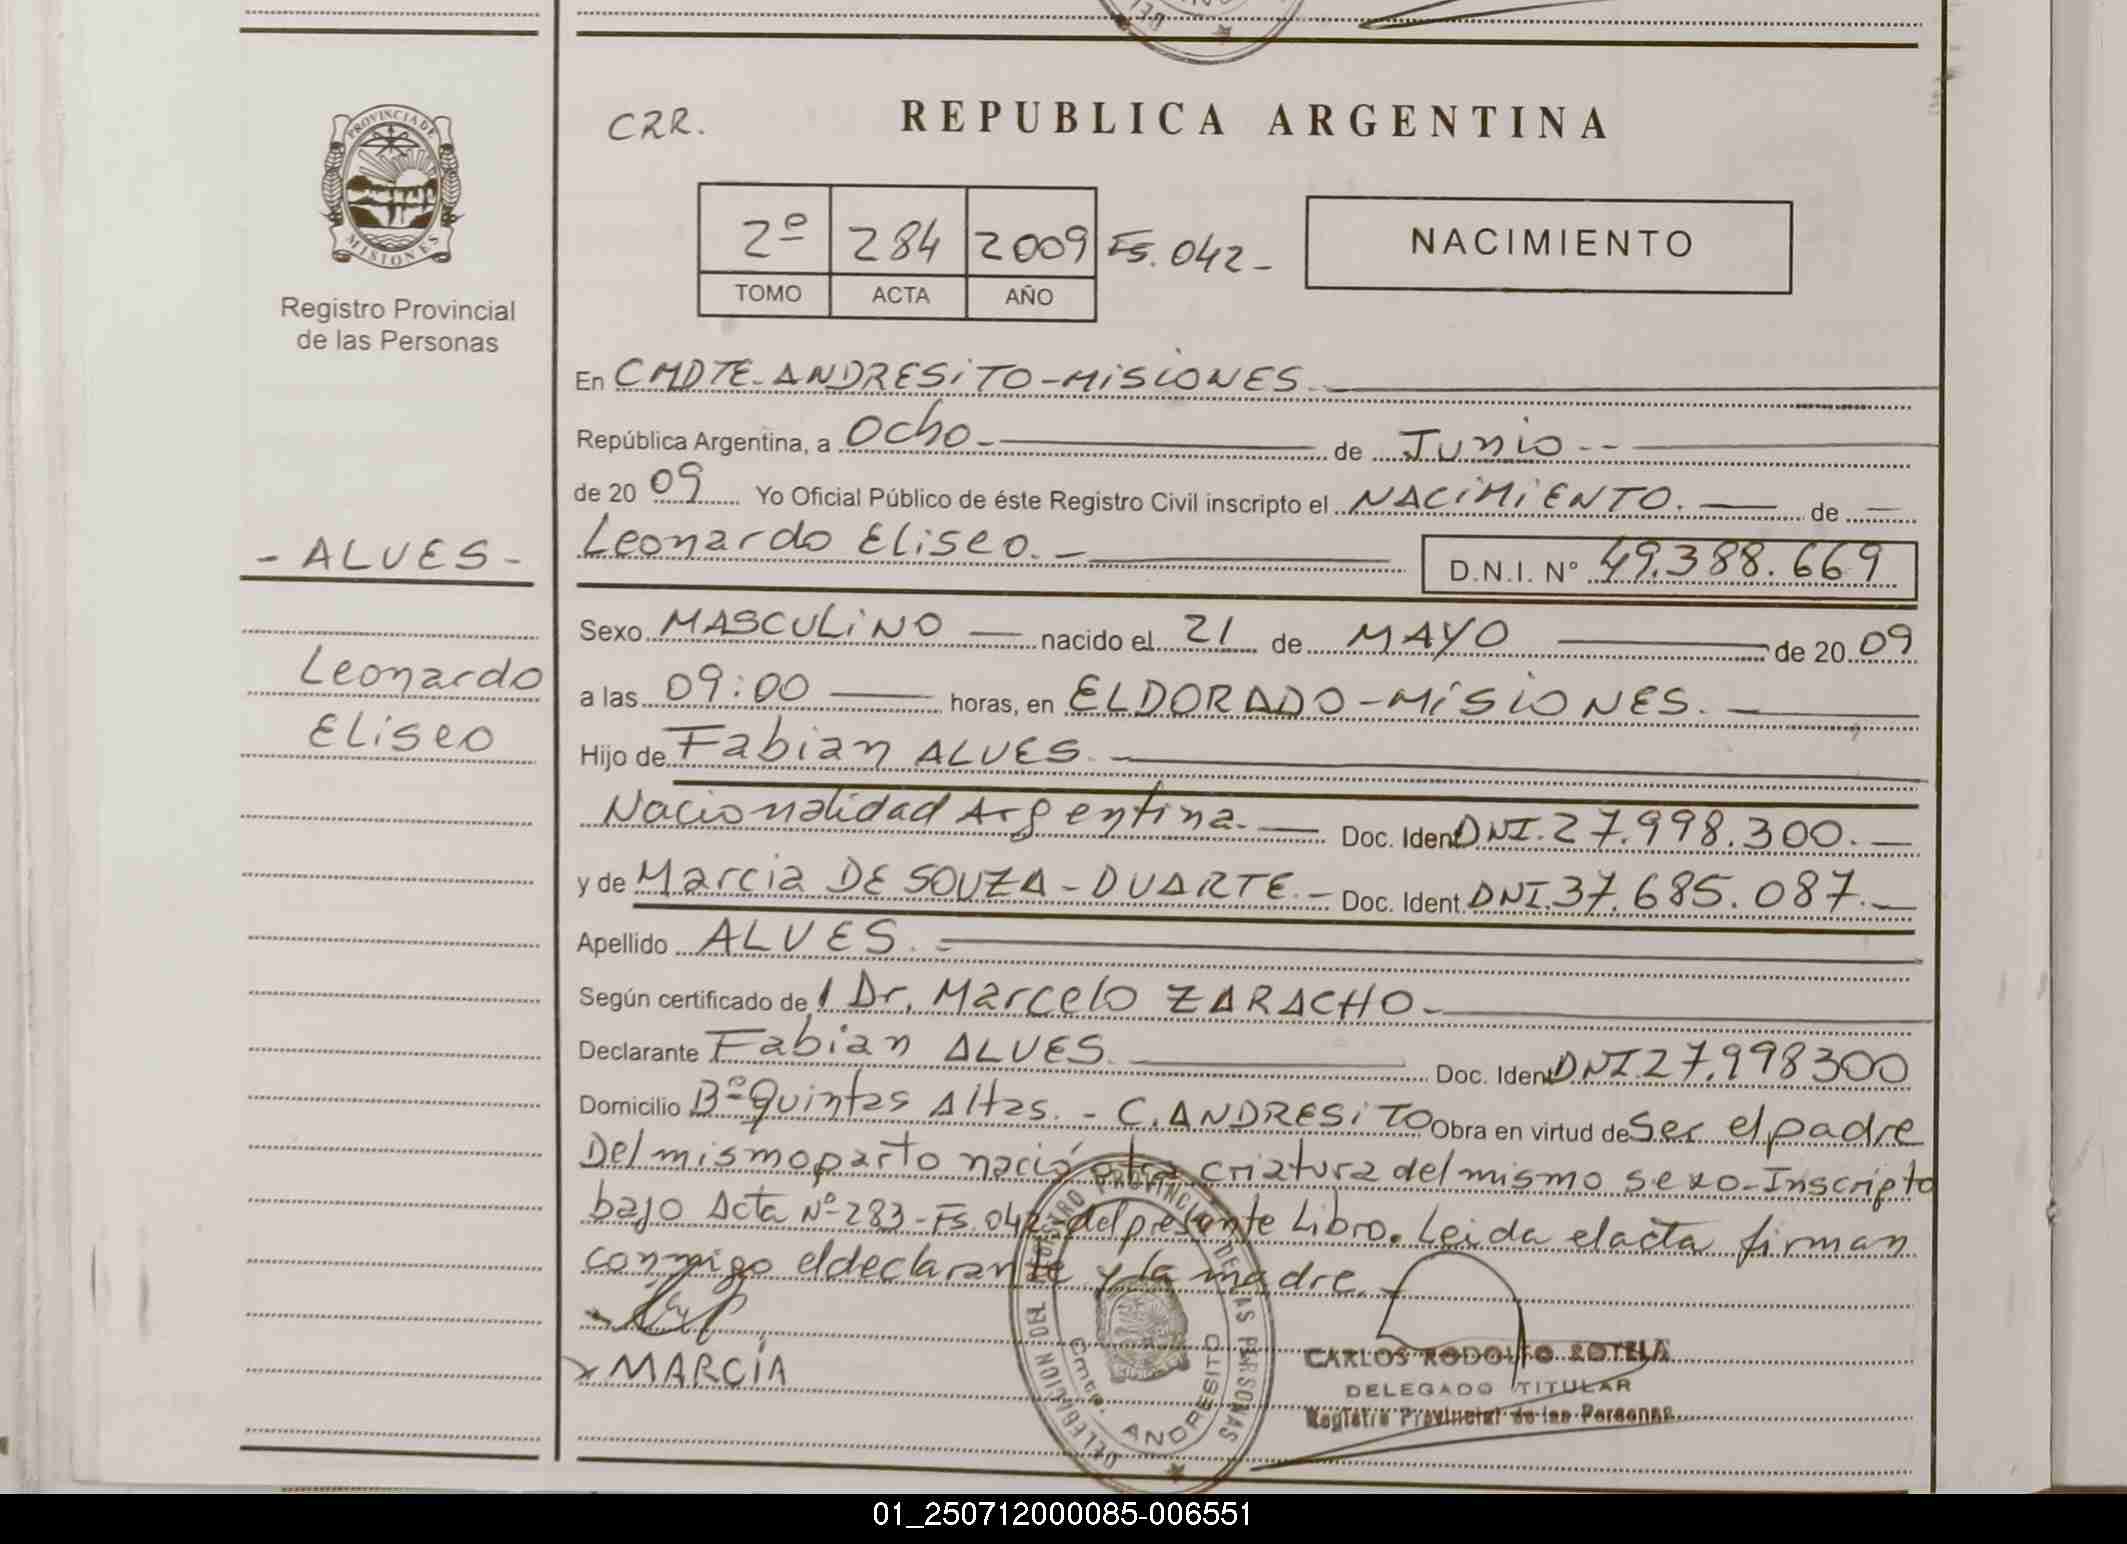 REPUBLICA ARGENTINA
CRR.
PROVINCIA DE
MISIONES
Registro Provincial
de las Personas
2º 284 2009 Fs. 042-
TOMO ACTA AÑO
NACIMIENTO
En CMDTE-ANDRESiTO-MiSiONES.
República Argentina, a Ocho.- de Junio--
de 20 09 Yo Oficial Público de éste Registro Civil inscripto el NACiMiENTO. de
- ALVES -
Leonardo Eliseo.-
D.N.I. Nº 49.388.669
Leonardo
Eliseo
Sexo MASCULiNO nacido el 21 de MAYO de 20 09
a las 09:00 horas, en ELDORADO-MiSiONES.
Hijo de Fabian ALVES.
Nacionalidad Argentina. Doc. Ident DNI. 27.998.300.
y de Marcia DE SOUZA-DUARTE.- Doc. Ident. DNI. 37.685.087.
Apellido ALVES.
Según certificado de / Dr. Marcelo ZARACHO.
Declarante Fabian ALVES. Doc. Ident DNI 27.998300
Domicilio Bº Quintas Altas. - C. ANDRESiTO Obra en virtud de Ser el padre
Del mismo parto nació otra criatura del mismo sexo-Inscripto
bajo Acta Nº 283-Fs. 042, del presente Libro. Leida el acta firman
conmigo el declarante y la madre.-
x MARCÍA
DELEGACION DEL REGISTRO PROVINCIAL DE LAS PERSONAS
Cmte. ANDRESITO
CARLOS RODOLFO ROTELA
DELEGADO TITULAR
Registro Provincial de las Personas
01_250712000085-006551